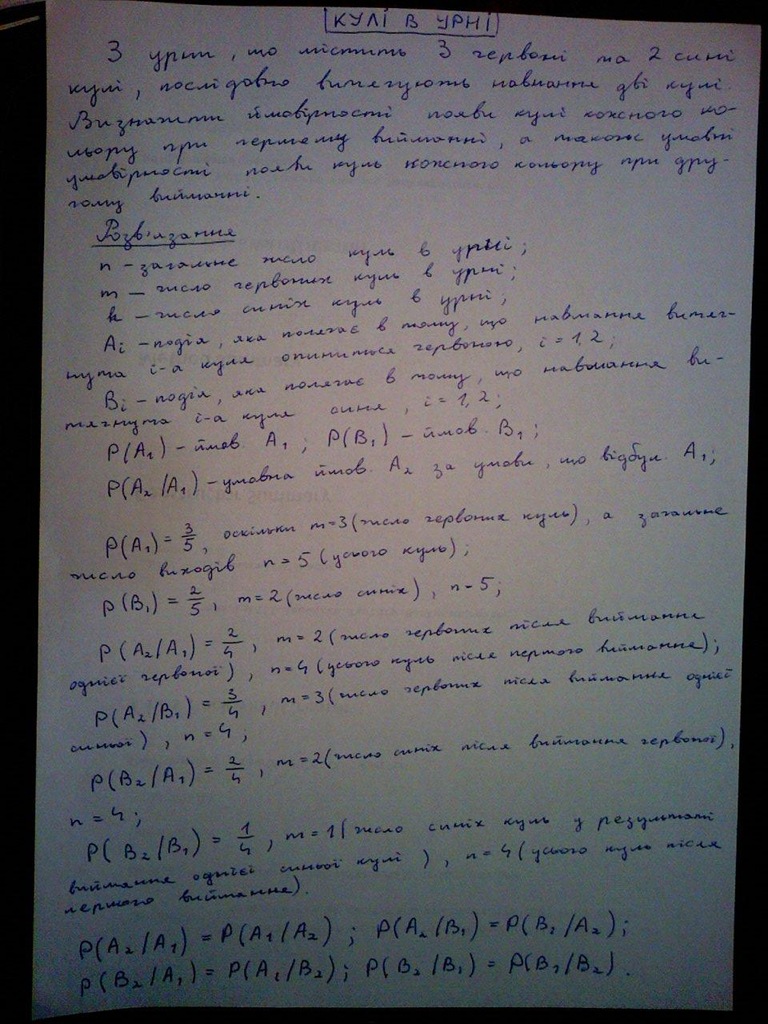 КУЛІ В УРНІ
З урни, що містить 3 червоні та 2 сині
кулі, послідовно витягують навмання дві кулі.
Визначити ймовірності появи кулі кожного ко-
льору при першому вийманні, а також умовні
ймовірності появи куль кожного кольору при дру-
гому вийманні.
Розв'язання
n - загальне число куль в урні;
m - число червоних куль в урні;
k - число синіх куль в урні;
Ai - подія, яка полягає в тому, що навмання витяг-
нута i-а куля опиниться червоною, i = 1,2;
Bi - подія, яка полягає в тому, що навмання ви-
тягнута i-а куля синя, i = 1,2;
P(A1) - ймов. A1; P(B1) - ймов. B1;
P(A2/A1) - умовна ймов. A2 за умови, що відбул. A1;
P(A1) = 3/5, оскільки m=3 (число червоних куль), а загальне
число виходів n=5 (усього куль);
P(B1) = 2/5, m=2 (число синіх), n=5;
P(A2/A1) = 2/4, m=2 (число червоних після виймання
однієї червоної), n=4 (усього куль після першого виймання);
P(A2/B1) = 3/4, m=3 (число червоних після виймання однієї
синьої), n=4;
P(B2/A1) = 2/4, m=2 (число синіх після виймання червоної),
n=4;
P(B2/B1) = 1/4, m=1 (число синіх куль у результаті
виймання однієї синьої кулі), n=4 (усього куль після
першого виймання).
P(A2/A1) = P(A1/A2); P(A2/B1) = P(B1/A2);
P(B2/A1) = P(A1/B2); P(B2/B1) = P(B1/B2).